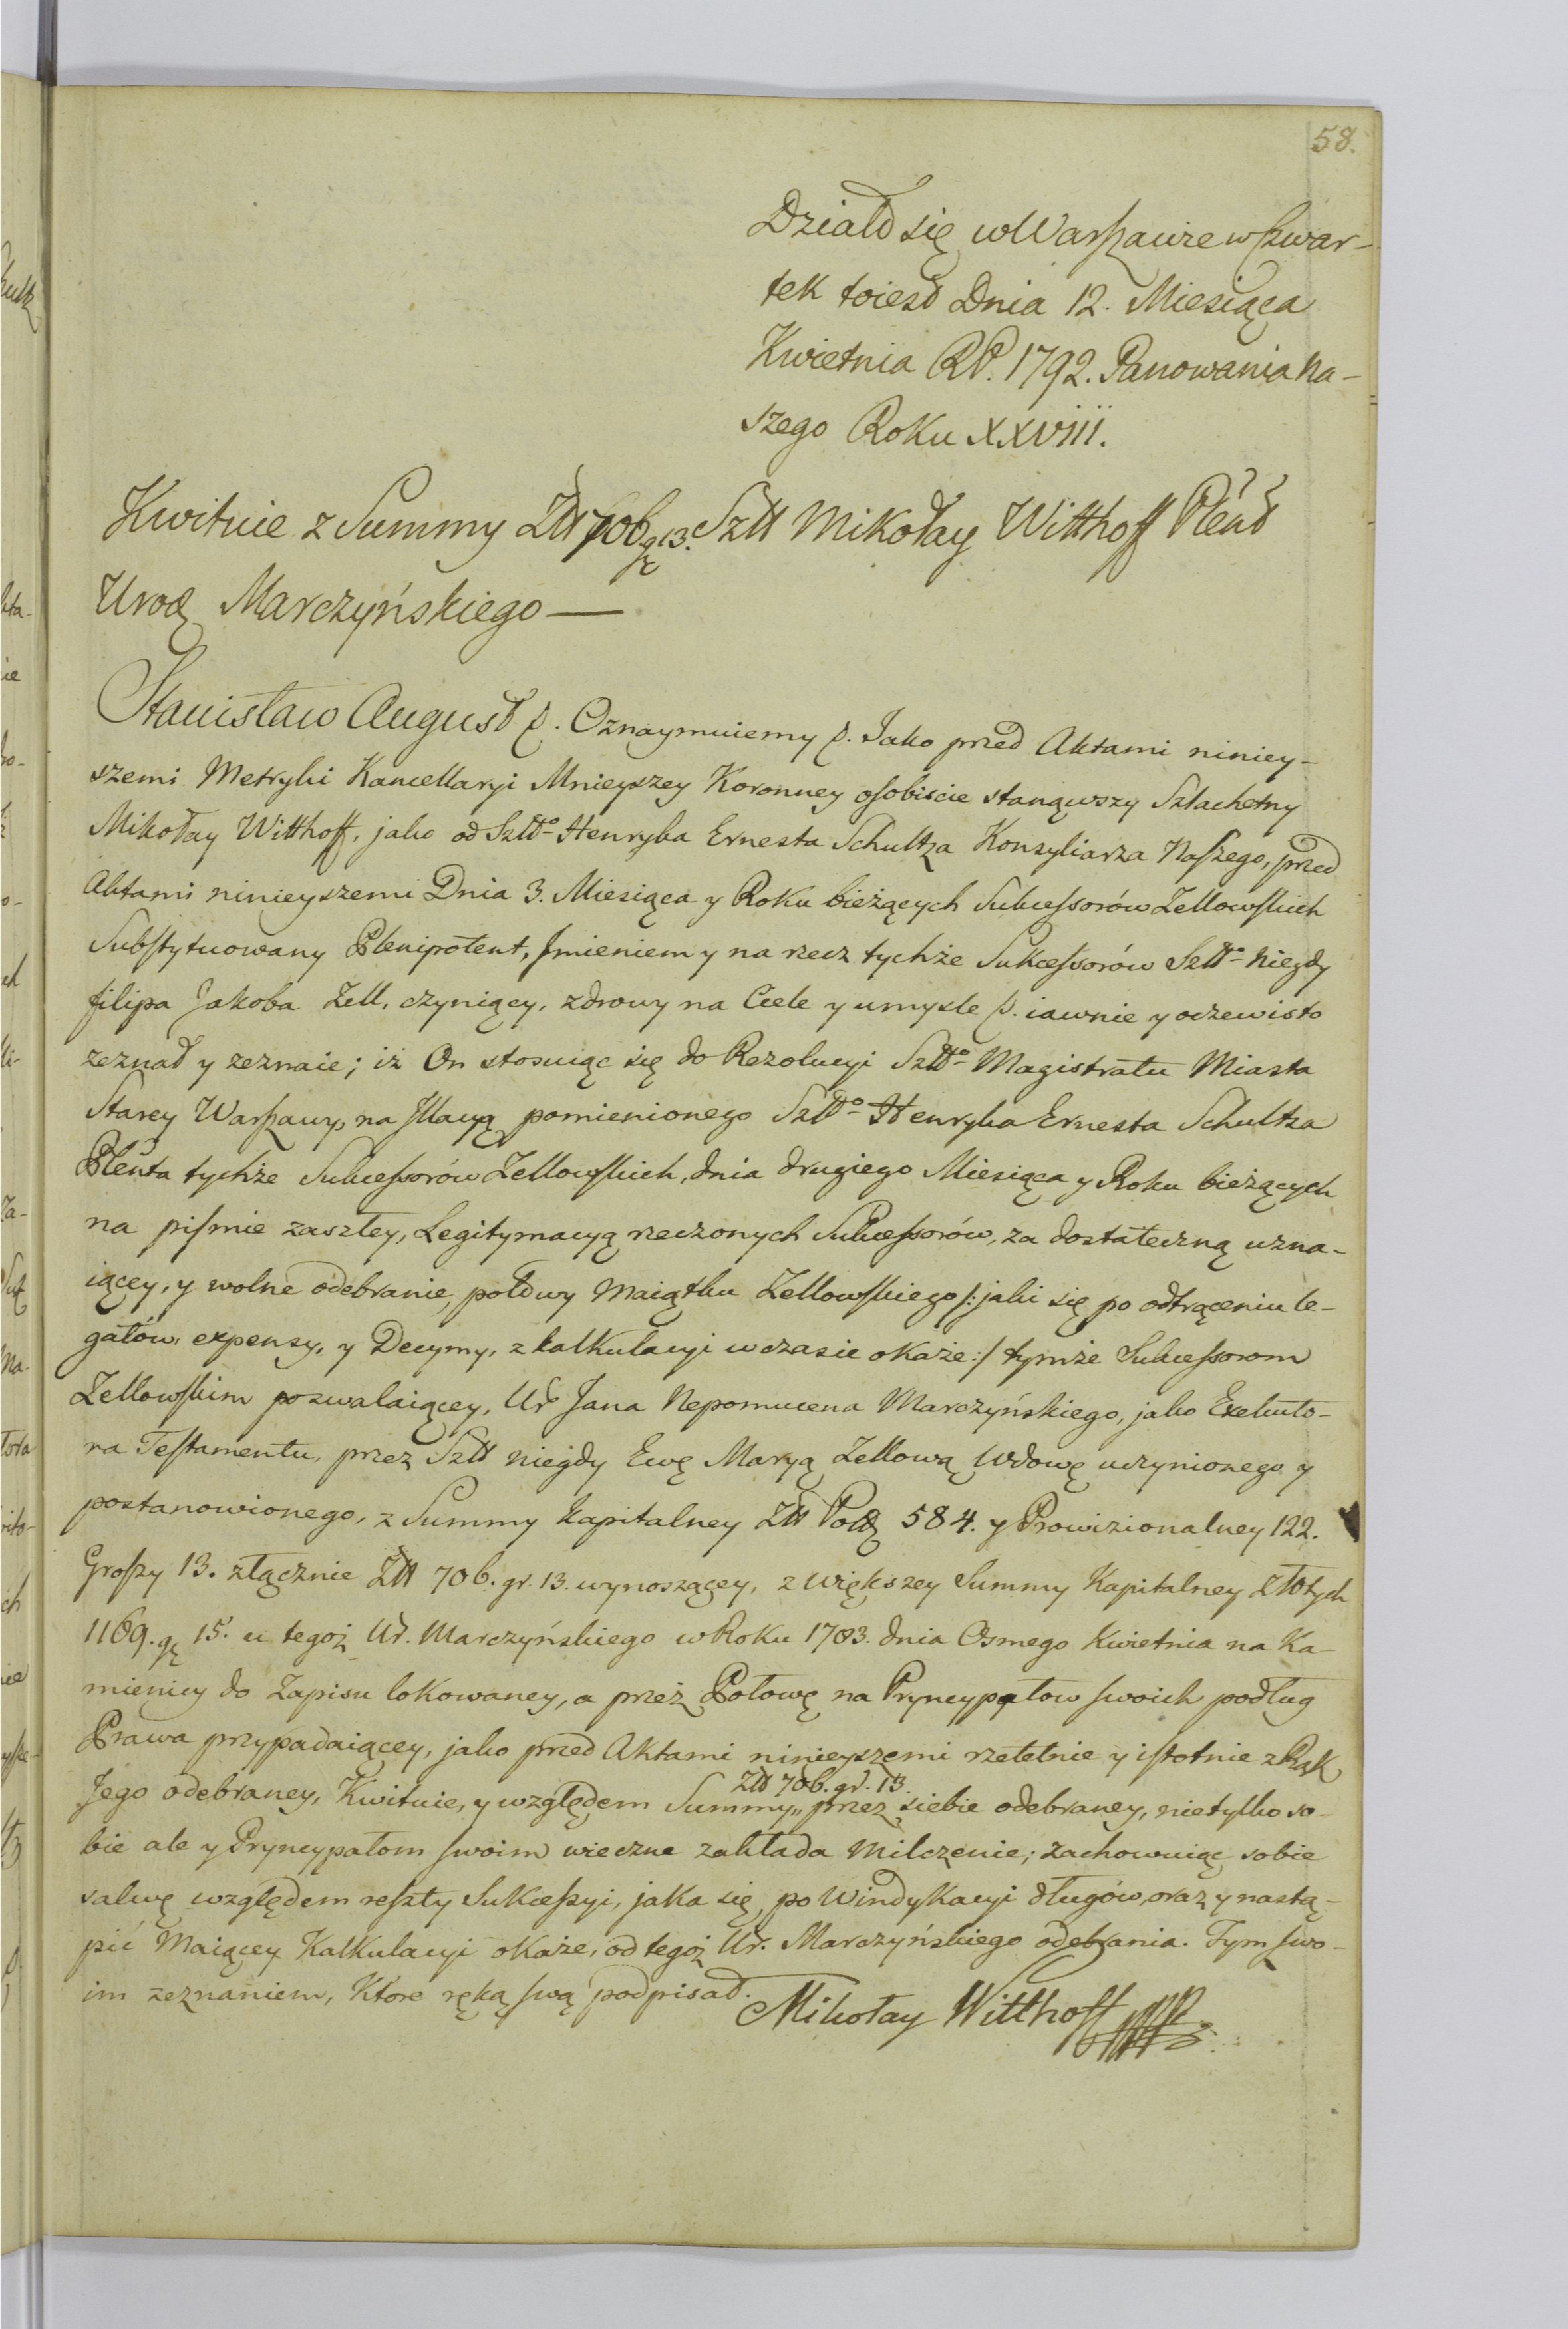 58.
Działo się w Warszawie w Czwar-
tek toiest Dnia 12. Miesiąca
Kwietnia RP. 1792. Panowania Na-
szego Roku XXVIII.
Kwituie z Summy Złł 706 gr 13. Szll Mikołay Witthoff Plent
Urodz Marczyńskiego —
Stanisław August p. Oznaymuiemy p. Jako przed Aktami niniey-
szemi Metryki Kancellaryi Mnieyszey Koronney osobiscie stanąwszy Szlachetny
Mikołay Witthoff, jako od Szllo Henryka Ernesta Schultza Konsyliarza Naszego, przed
Aktami ninieyszemi Dnia 3. Miesiąca y Roku bieżących Sukcessorów Zellowskich
Substytuowany Plenipotent, Jmieniem y na rzecz tychże Sukcessorów Szllo niegdy
filipa Jakoba Zell, czyniący, zdrowy na Ciele y umysle p. iawnie y oczewisto
zeznał y zeznaie; iż On stosuiąc się do Rezolucyi Szllo Magistratu Miasta
Starey Warszawy, na Jllacyą pomienionego Szllo Henryka Ernesta Schultza
Plenta tychże Sukcessorów Zellowskich, dnia drugiego Miesiąca y Roku bieżących
na piśmie zaszłey, Legitymacyą rzeczonych Sukcessorów, za dostateczną uzna-
iącey, y wolne odebranie połowy Maiątku Zellowskiego /: jaki się po odtrąceniu le-
gatów, expensy, y Decymy, z kalkulacyi w czasie okaże :/ tymże Sukcessorom
Zellowskim pozwalaiącey, Ur Jana Nepomucena Marczyńskiego, jako Exekuto-
ra Testamentu, przez Szll niegdy Ewę Maryą Zellową Wdowę uczynionego y
postanowionego, z Summy kapitalney Złł Polz 584. y Prowizionalney 122.
Groszy 13. złącznie Złł 706. gr. 13. wynoszącey, z większey Summy Kapitalney Złotych
1169. gr 15. u tegoż Ur. Marczyńskiego w Roku 1783. dnia Osmego Kwietnia na Ka-
mienicy do Zapisu lokowaney, a przez Połowę na Pryncypałow swoich podług
Prawa przypadaiącey, jako przed Aktami ninieyszemi rzetelnie y istotnie z Rąk
Jego odebraney, Kwituie, y względem Summy „ Złł 706. gr. 13. przez siebie odebraney, nietylko so-
bie ale y Pryncypałom swoim wieczne zakłada Milczenie; zachowuiąc sobie
salwę względem reszty Sukcessyi, jaka się po Windykacyi długów, oraz y nastą-
pić Maiącey Kalkulacyi okaże, od tegoż Ur. Marczyńskiego odebrania. Tym swo-
im zeznaniem, Ktore ręką swą podpisał.
Mikołay Witthoff